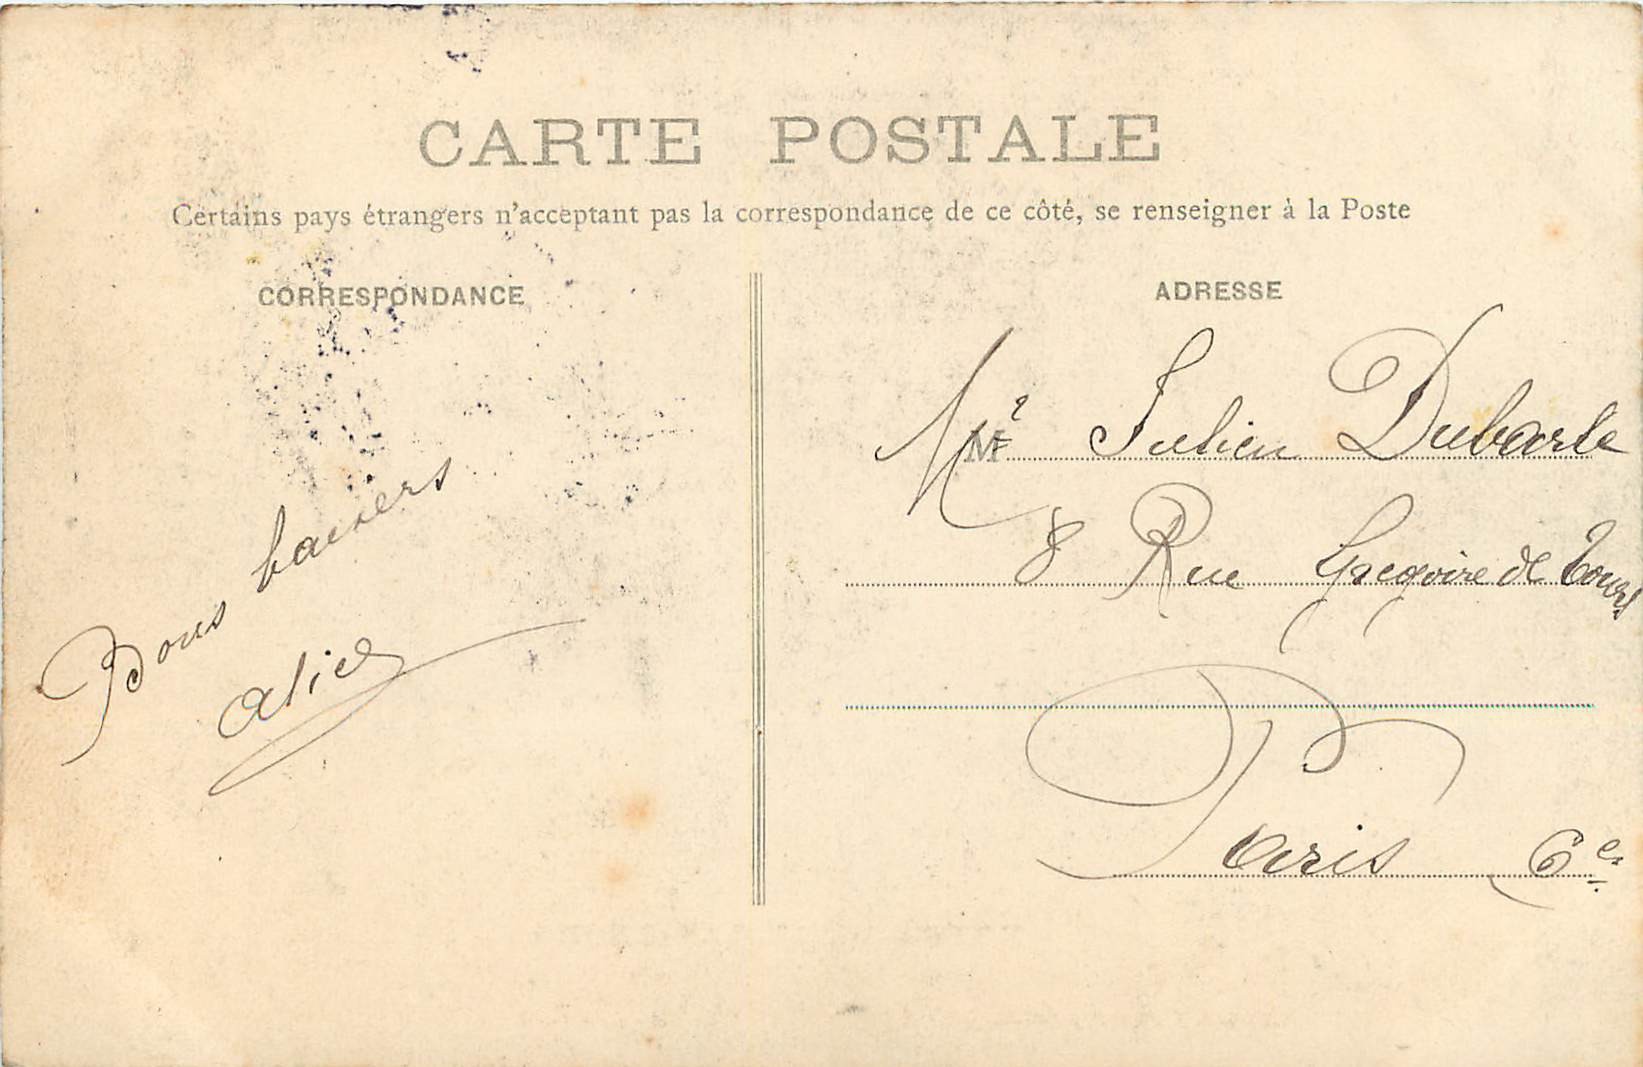 CARTE POSTALE
Certains pays étrangers n'acceptant pas la correspondance de ce côté, se renseigner à la Poste
CORRESPONDANCE
Bons baisers
Alice
ADRESSE
Mr Julien Dubarle
8 Rue Grégoire de Tours
Paris 6e